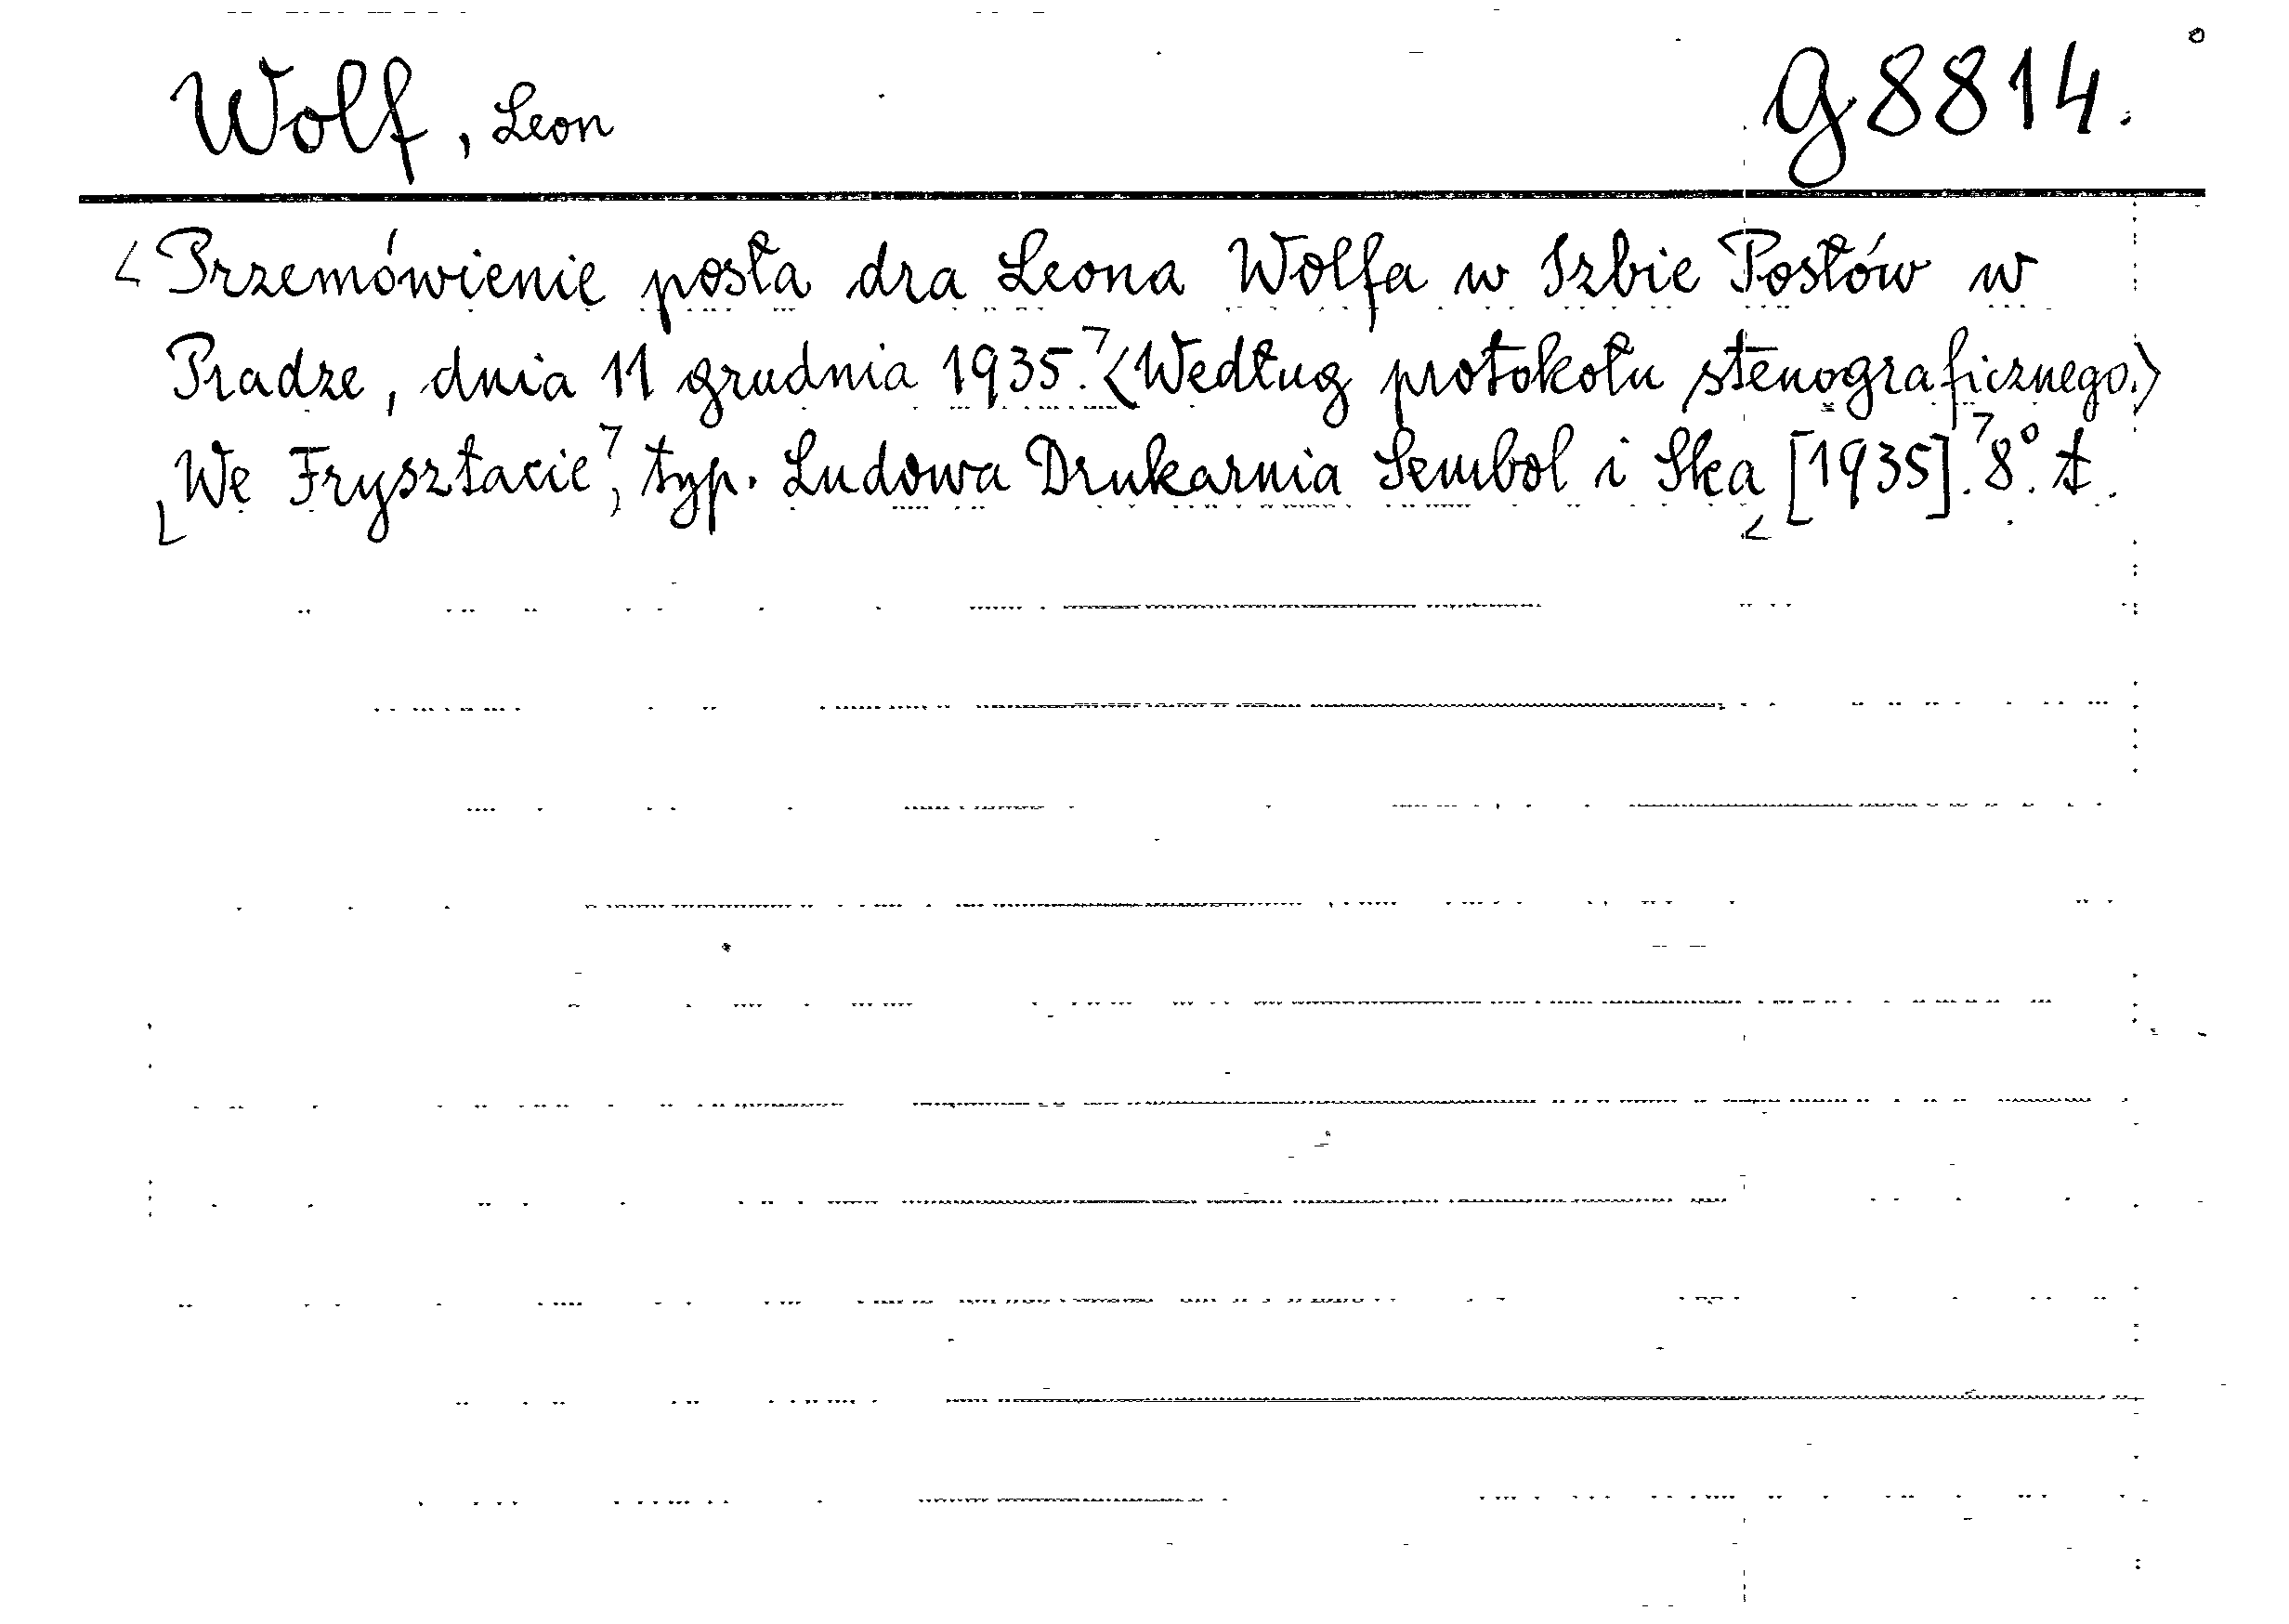 Wolf, Leon
g 8814.
<Przemówienie posła dra Leona Wolfa w Izbie Posłów w
Pradze, dnia 11 grudnia 1935.> <Według protokołu stenograficznego.>
We Frysztacie, typ. Ludowa Drukarnia Sembol i Ska [1935]. 8°. A.